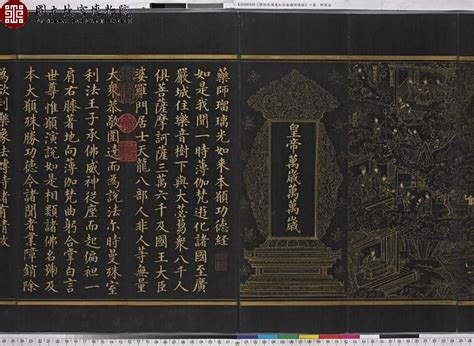 國立故宮博物院
皇帝萬歲萬萬歲
藥師瑠璃光如來本願功德經
如是我聞一時薄伽梵遊化諸國至廣
嚴城住樂音樹下與大苾芻衆八千人
俱菩薩摩訶薩三萬六千及國王大臣
婆羅門居士天龍八部人非人等無量
大衆恭敬圍遶而為說法尒時曼殊室
利法王子承佛威神從座而起偏袒一
肩右膝著地向薄伽梵曲躬合掌白言
世尊惟願演說如是相類諸佛名號及
本大願殊勝功德令諸聞者業障銷除